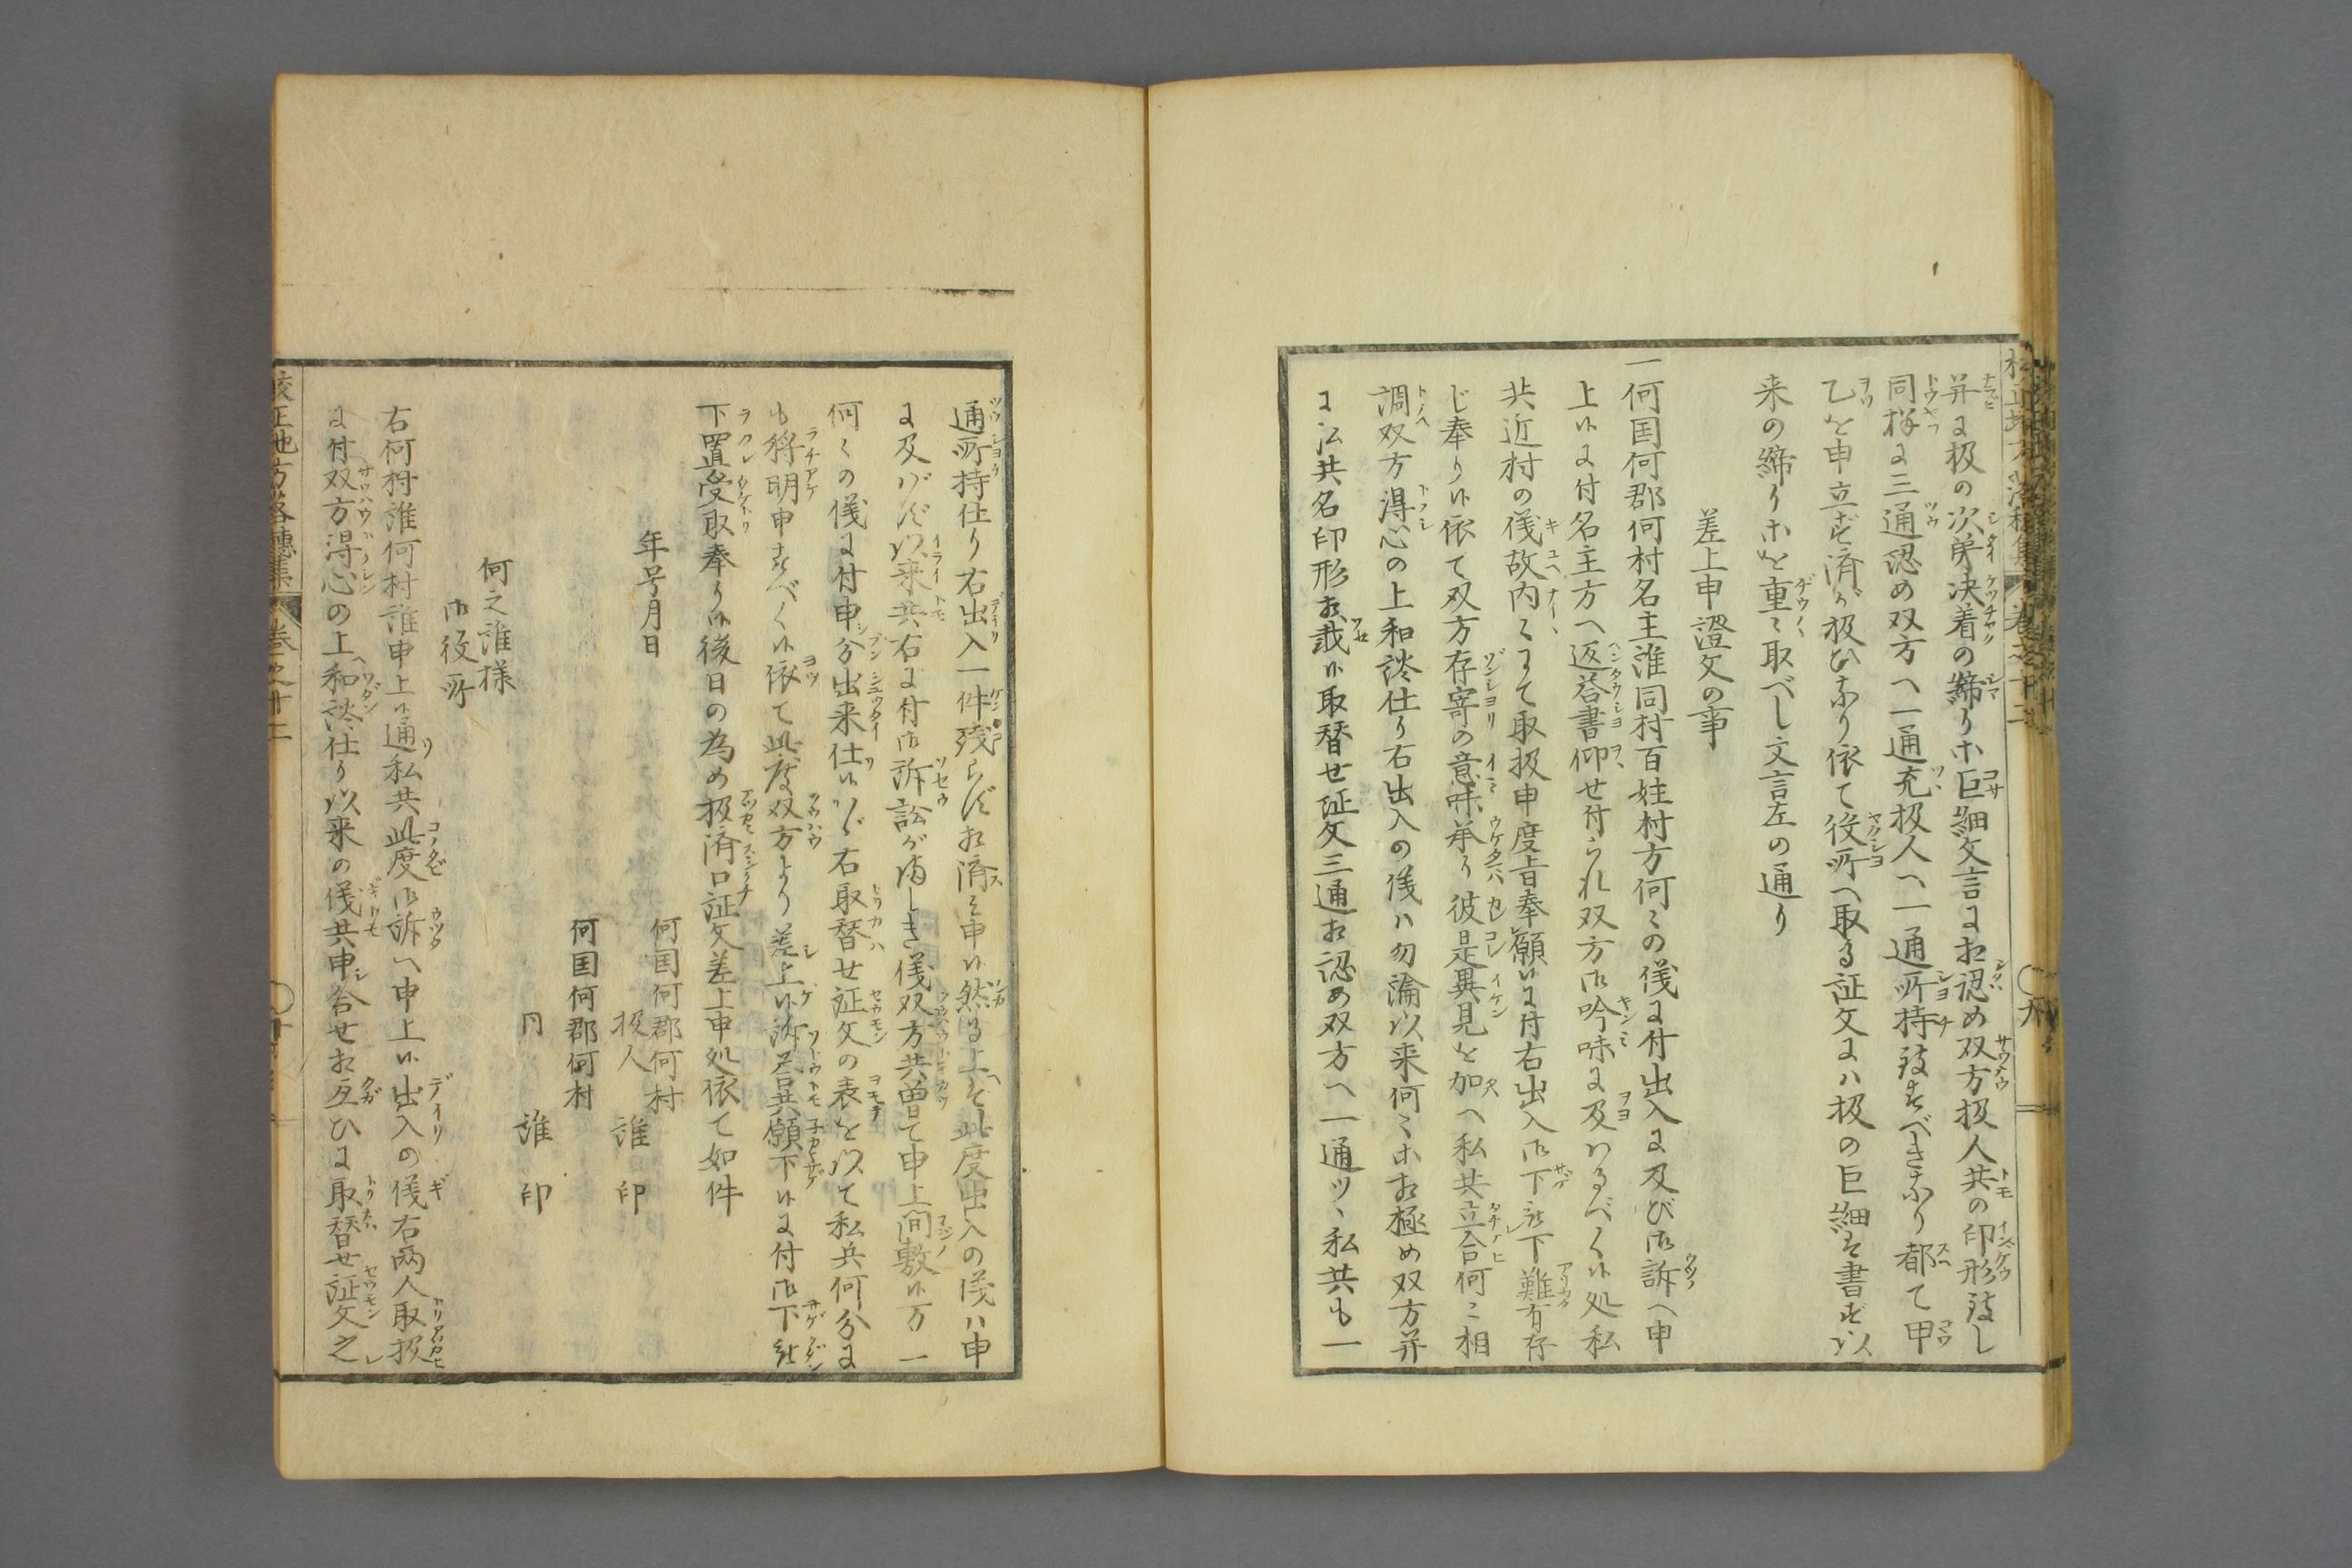 并に扱の次第決着の締りホ巨細文言に相認め双方扱人共の印形致し
同様に三通認め双方へ一通充扱人へ一通所持致すべきなり都て甲
乙を申立ず済が扱ひなり依て役所へ取る証文には扱の巨細を書ず以
来の締りホを重〻取べし文言左の通り
差上申證文の事
一何国何郡何村名主誰同村百姓村方何〻の儀に付出入に及び御訴へ申
上候に付名主方へ返答書仰せ付られ双方御吟味に及わるべく候処私
共近村の儀故内〻にて取扱申度旨奉願候に付右出入御下被下難有存
じ奉り候依て双方存寄の意味承り彼是異見を加へ私共立合何〻相
調双方得心の上和談仕り右出入の儀ハ勿論以来何〻ホ相極め双方并
に私共名印形相載候取替せ証文三通相認め双方へ一通ツヽ私共も一
通所持仕り右出入一件残らず相済ミ申候然る上は此度出入の儀ハ申
に及バず以来共右に付御訴訟が満しき儀双方共曽て申上間敷候万一
何〻の儀に付申分出来仕候ハヾ右取替せ証文の表を以て私共何分に
も捌明申すべく候依て此度双方より差上候訴答共願下候に付御下被
下置受取奉り候後日の為め扱済口証文差上申処依て如件
年号月日
何国何郡何村
扱人 誰 印
何国何郡何村
同 誰 印
何之誰様
御役所
右何村誰何村誰申上候通私共此度御訴へ申上候出入の儀右両人取扱
に付双方得心の上和談仕り以来の儀共申合せ相互ひに取替せ証文之
校正地方落穂集 巻之十二